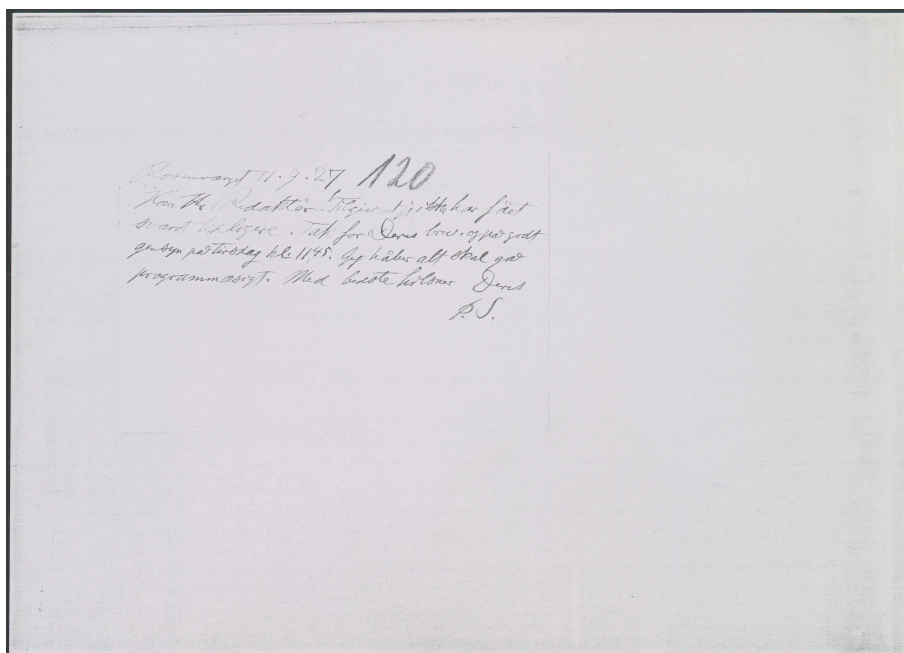 Rosenvænget 11.9.27 120
Kære Hr. Redaktör! Tilgiv at jeg ikke har fået
svaret tidligere. Tak for Deres brev, og på godt
gensyn på tirsdag kl. 1145. Jeg håber alt skal gå
programmæssigt. Med bedste hilsner Deres
P.S.